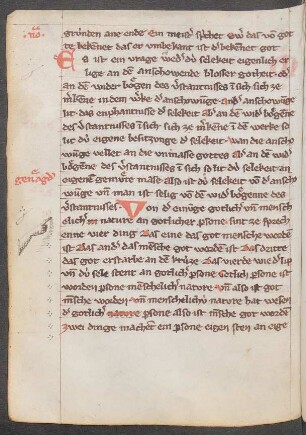 gründen ane ende Ein meist͛ sp̃chet Wer das vō got
te bekennet das er vmbekant ist d͛ bekennet got
Es ist ein vrage wed͛ dü selekeit eigenlich er
lige an dē anschowende blosser gotheit od͛
an dē wider bögen des v͛stantnisses i sich sich ze
in dem w͛ke d͛ anschowūge
lit das enphantnisse d͛ selekeit an dē wid͛ bögene
des v͛stantnisses i sich sich ze in dē werke so
lit dü eigene besitzunge d͛ selekeit wan die anscho
wūge vellet an die vnmasse gottes an dē wid͛
bögene des v͛stantnisses i sich so lit dü selekeit an
eigene mase also ist dü selekeit vō d͛ ansch
wūge vn̄ man ist selig vō dē wid͛ bögene des
v͛stantnisses Von d͛ einūge gotlich͛ vn̄ mensch
elich͛ nature an gotlicher p͛sone sint ze sprech
enne vier ding Das eine das got mensche worde
ist Das and͛ das mēsche got wordē ist Das dritte
das got erstarbe an dē krüze Das vierde wie d͛ lip
vn̄ dü sele stent an gotlich͛ p͛sone Gotlich p͛sone ist
worden p͛sone mēschelich͛ nature vn̄ also ist got
mēsche wordē vn̄ menschelichü nature hat wesen
d͛ gotlich͛ nature p͛sone also ist mēsche got worde
Zwei dinge machēt ein p͛sone eigen sten an eige